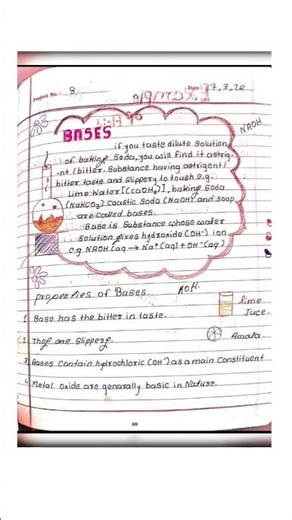 Project No.: 8.
Date: 7, 3, 20
NAOH
BASES
if you taste dilute Solution
of baking Soda, you will find it astrig-
nt / bitter. Substance having astrigent/
bitter taste and Slippery to touch e.g.
Lime Water [CaOH₂], baking Soda
(NaHCO₃) Caustic Soda (NaOH) and soap
are called bases.
Base is Substance whose water
Solution gives hydroxide (OH⁻) ion
e.g NAOH (aq → Na⁺ (aq) + OH⁻ (aq)
properties of Bases.
lime
Juce.
1. Base has the bitter in taste.
2. Thef one Slippery.
Amala.
3. Bases Contain hydrochloric (OH⁻) as a main Constituent
4. Metal Oxide are genarally basic in Nature.